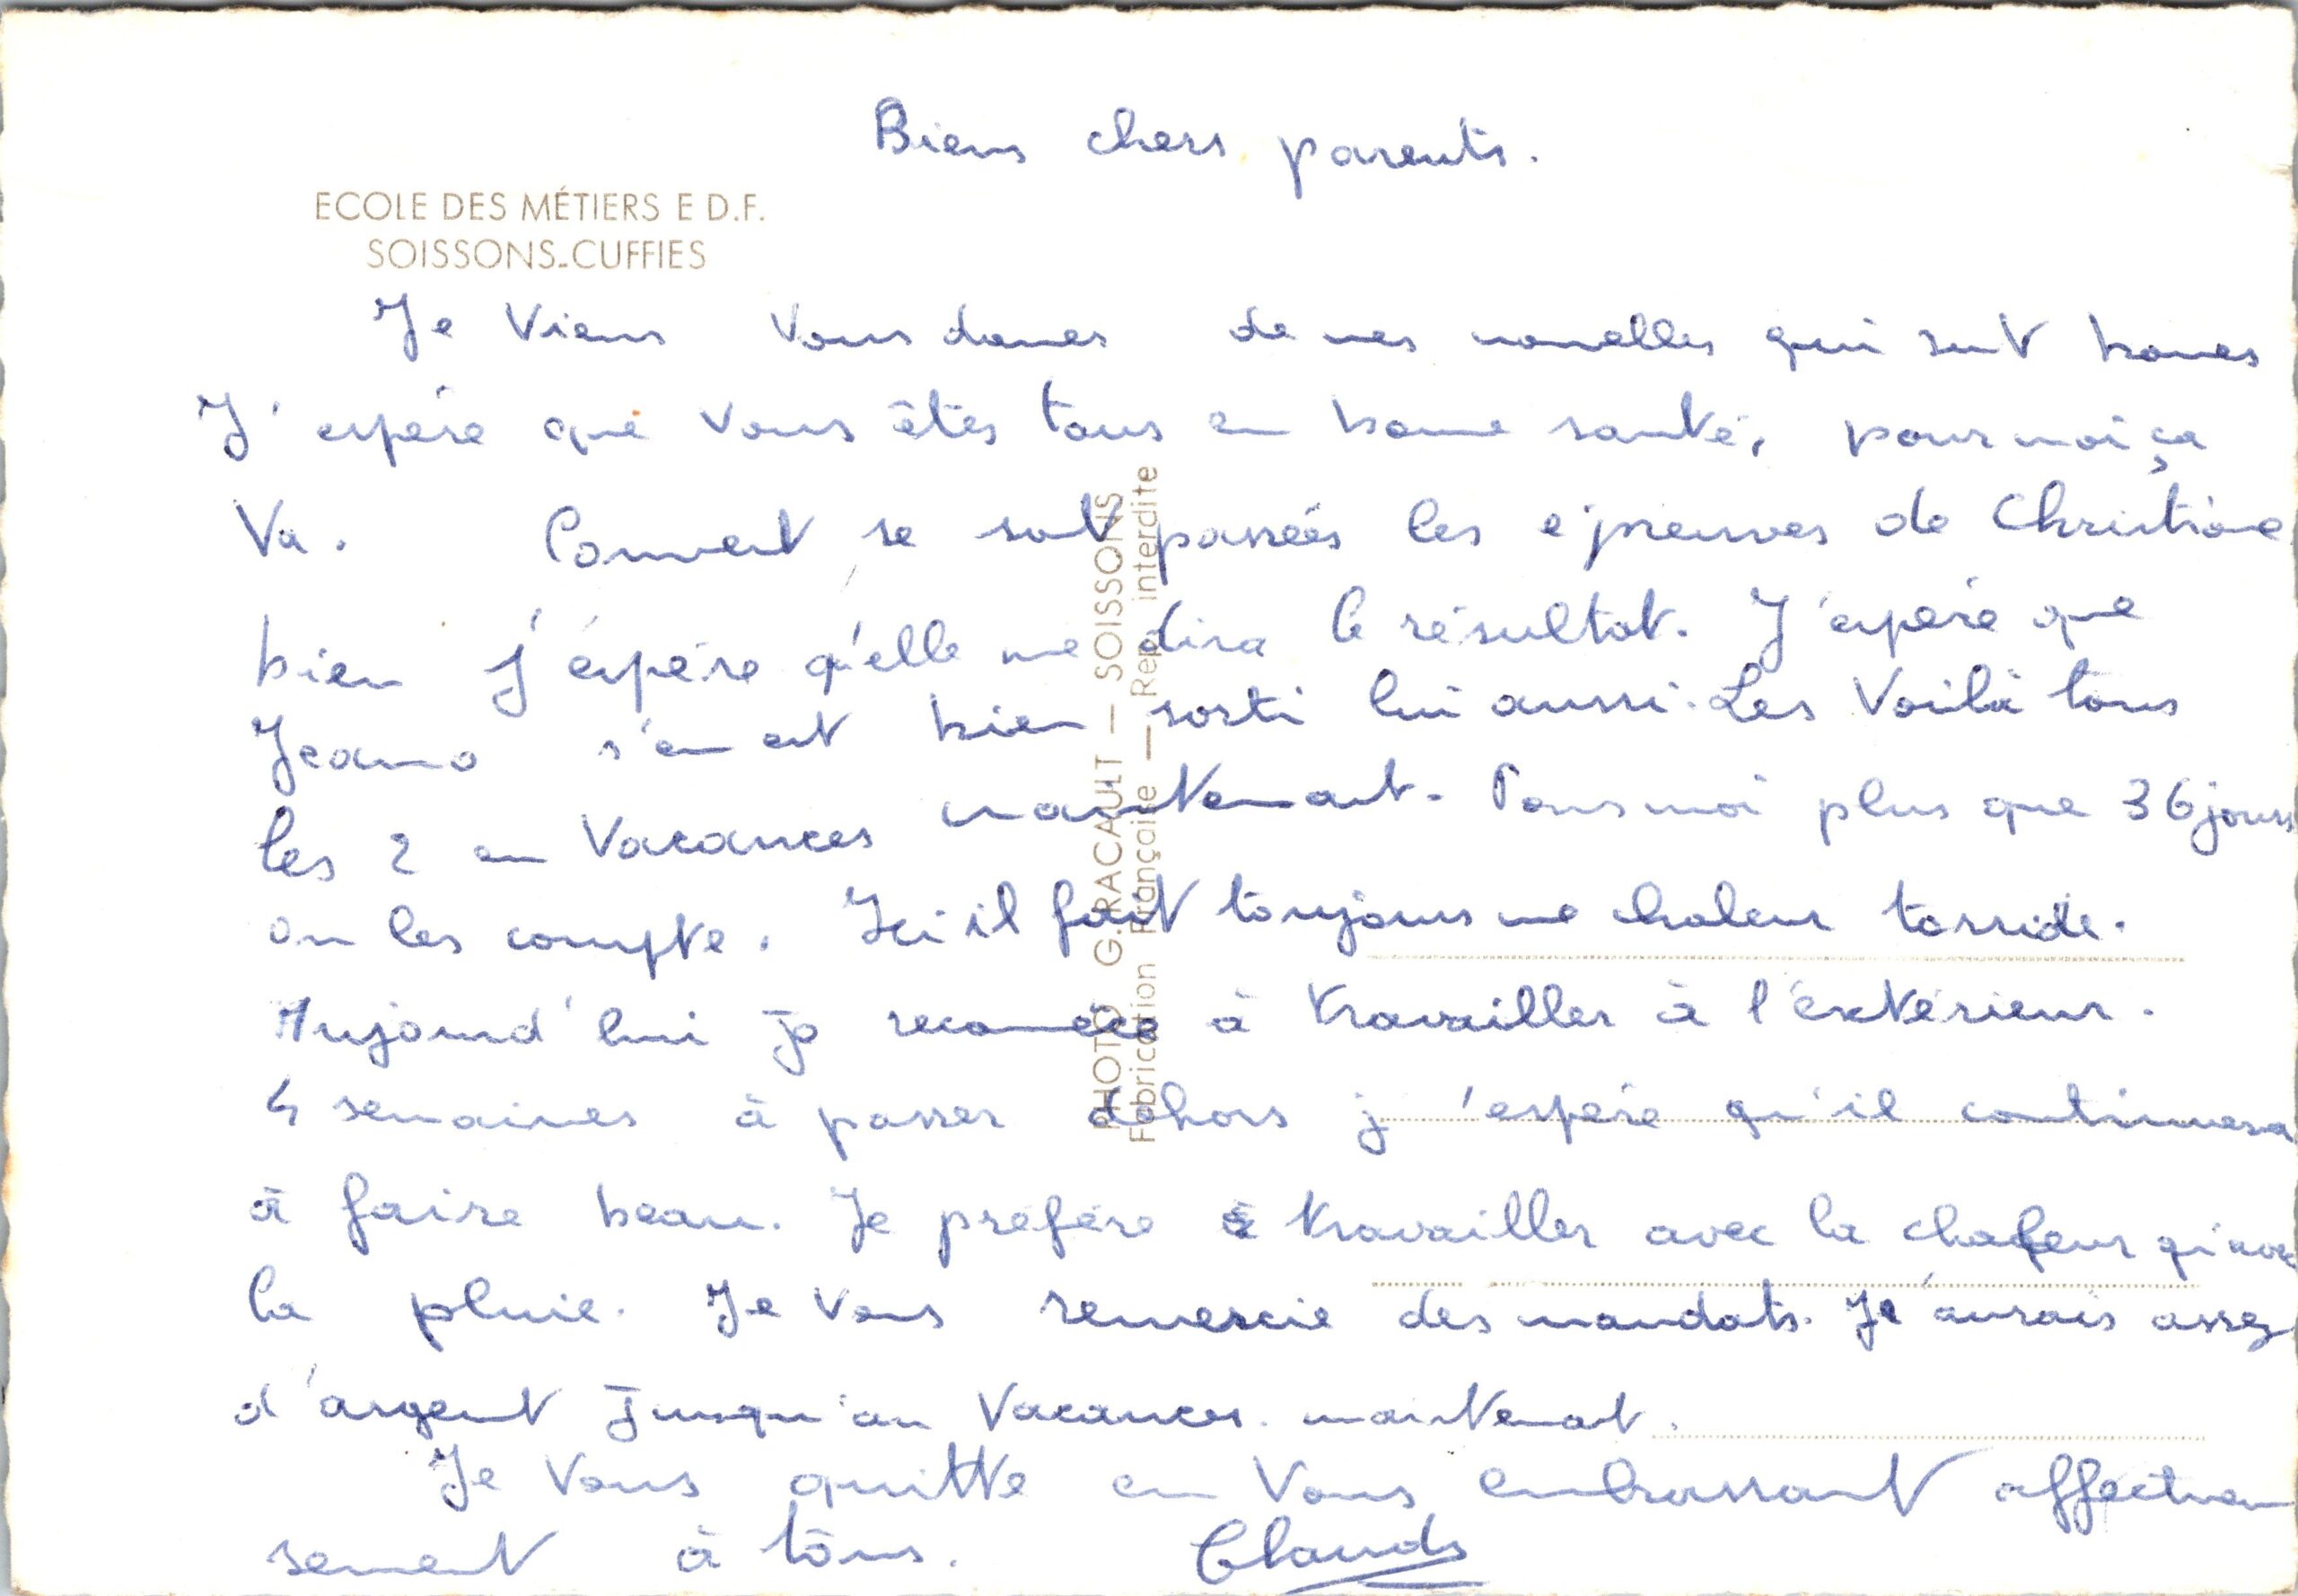 Biens chers parents.
ECOLE DES MÉTIERS E D.F.
SOISSONS-CUFFIES
Je Viens Vous doner de mes nouvelles qui sont bones
J'espére que Vous êtes tous en bonne santé, pour moi ça
Va. Comment se sont passées les épreuves de Christiane
bien j'éspére qu'elle me dira le résultat. J'éspére que
Jeano s'en est bien sorti lui aussi. Les Voilà tous
les 2 en Vacances maintenant. Pour moi plus que 36 jours
on les compte. Ici il fait toujours une chaleur torride.
Aujourd'hui je recomence à travailler à l'éxtérieur.
4 semaines à passer dehors j'espére qu'il continuera
à faire beau. Je préfére à travailler avec la chaleur qu'avec
la pluie. Je Vous remercie des mandats. Je aurais assez
d'argent jusqu'au Vacances. maintenant.
Je Vous quitte en Vous embrassant affectueu
sement à tous. Claude
PHOTO G. RACAULT — SOISSONS
Fabrication Française — Rep. interdite